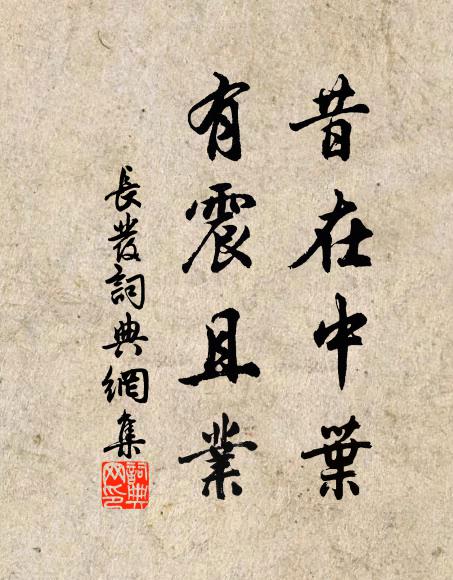 昔在中葉
有震且業
長發詞典網集
詞典網印